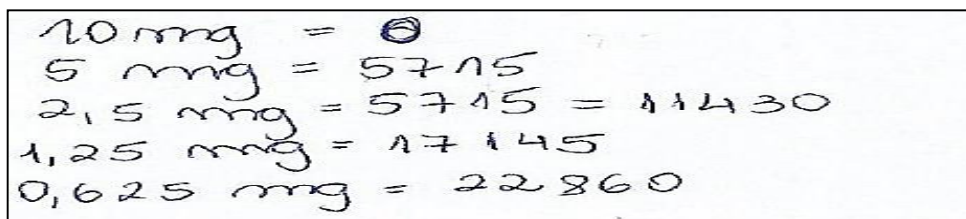 10 mg = 0
5 mg = 5715
2,5 mg = 5715 = 11430
1,25 mg = 17145
0,625 mg = 22860